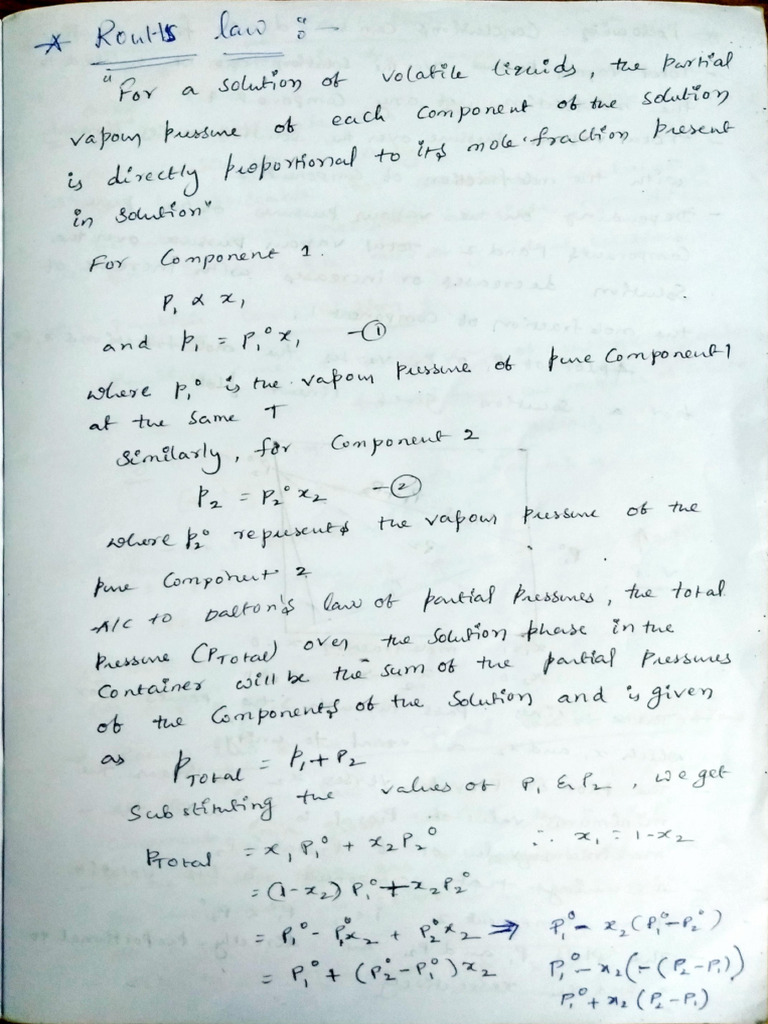 * Roults law :-
"For a solution of volatile liquids, the partial
vapour pressure of each component of the solution
is directly proportional to its mole fraction present
in solution"
For Component 1.
P₁ ∝ x₁
and p₁ = P₁° x₁ -①
where P₁° is the vapour pressure of pure Component 1
at the same T
Similarly, for Component 2
P₂ = P₂° x₂ -②
where P₂° represents the vapour pressure of the
pure Component 2
A/C to Dalton's law of partial pressures, the total
pressure (PTotal) over the solution phase in the
Container will be the sum of the partial pressures
of the Components of the Solution and is given
as PTotal = P₁ + P₂
Substituting the values of P₁ & P₂, we get
PTotal = x₁ P₁° + x₂ P₂° ∴ x₁ = 1-x₂
= (1-x₂) P₁° + x₂ P₂°
= P₁° - P₁° x₂ + P₂° x₂ ⇒ P₁° - x₂ (P₁° - P₂°)
= P₁° + (P₂° - P₁°) x₂ P₁° - x₂ (-(P₂ - P₁))
P₁° + x₂ (P₂ - P₁)